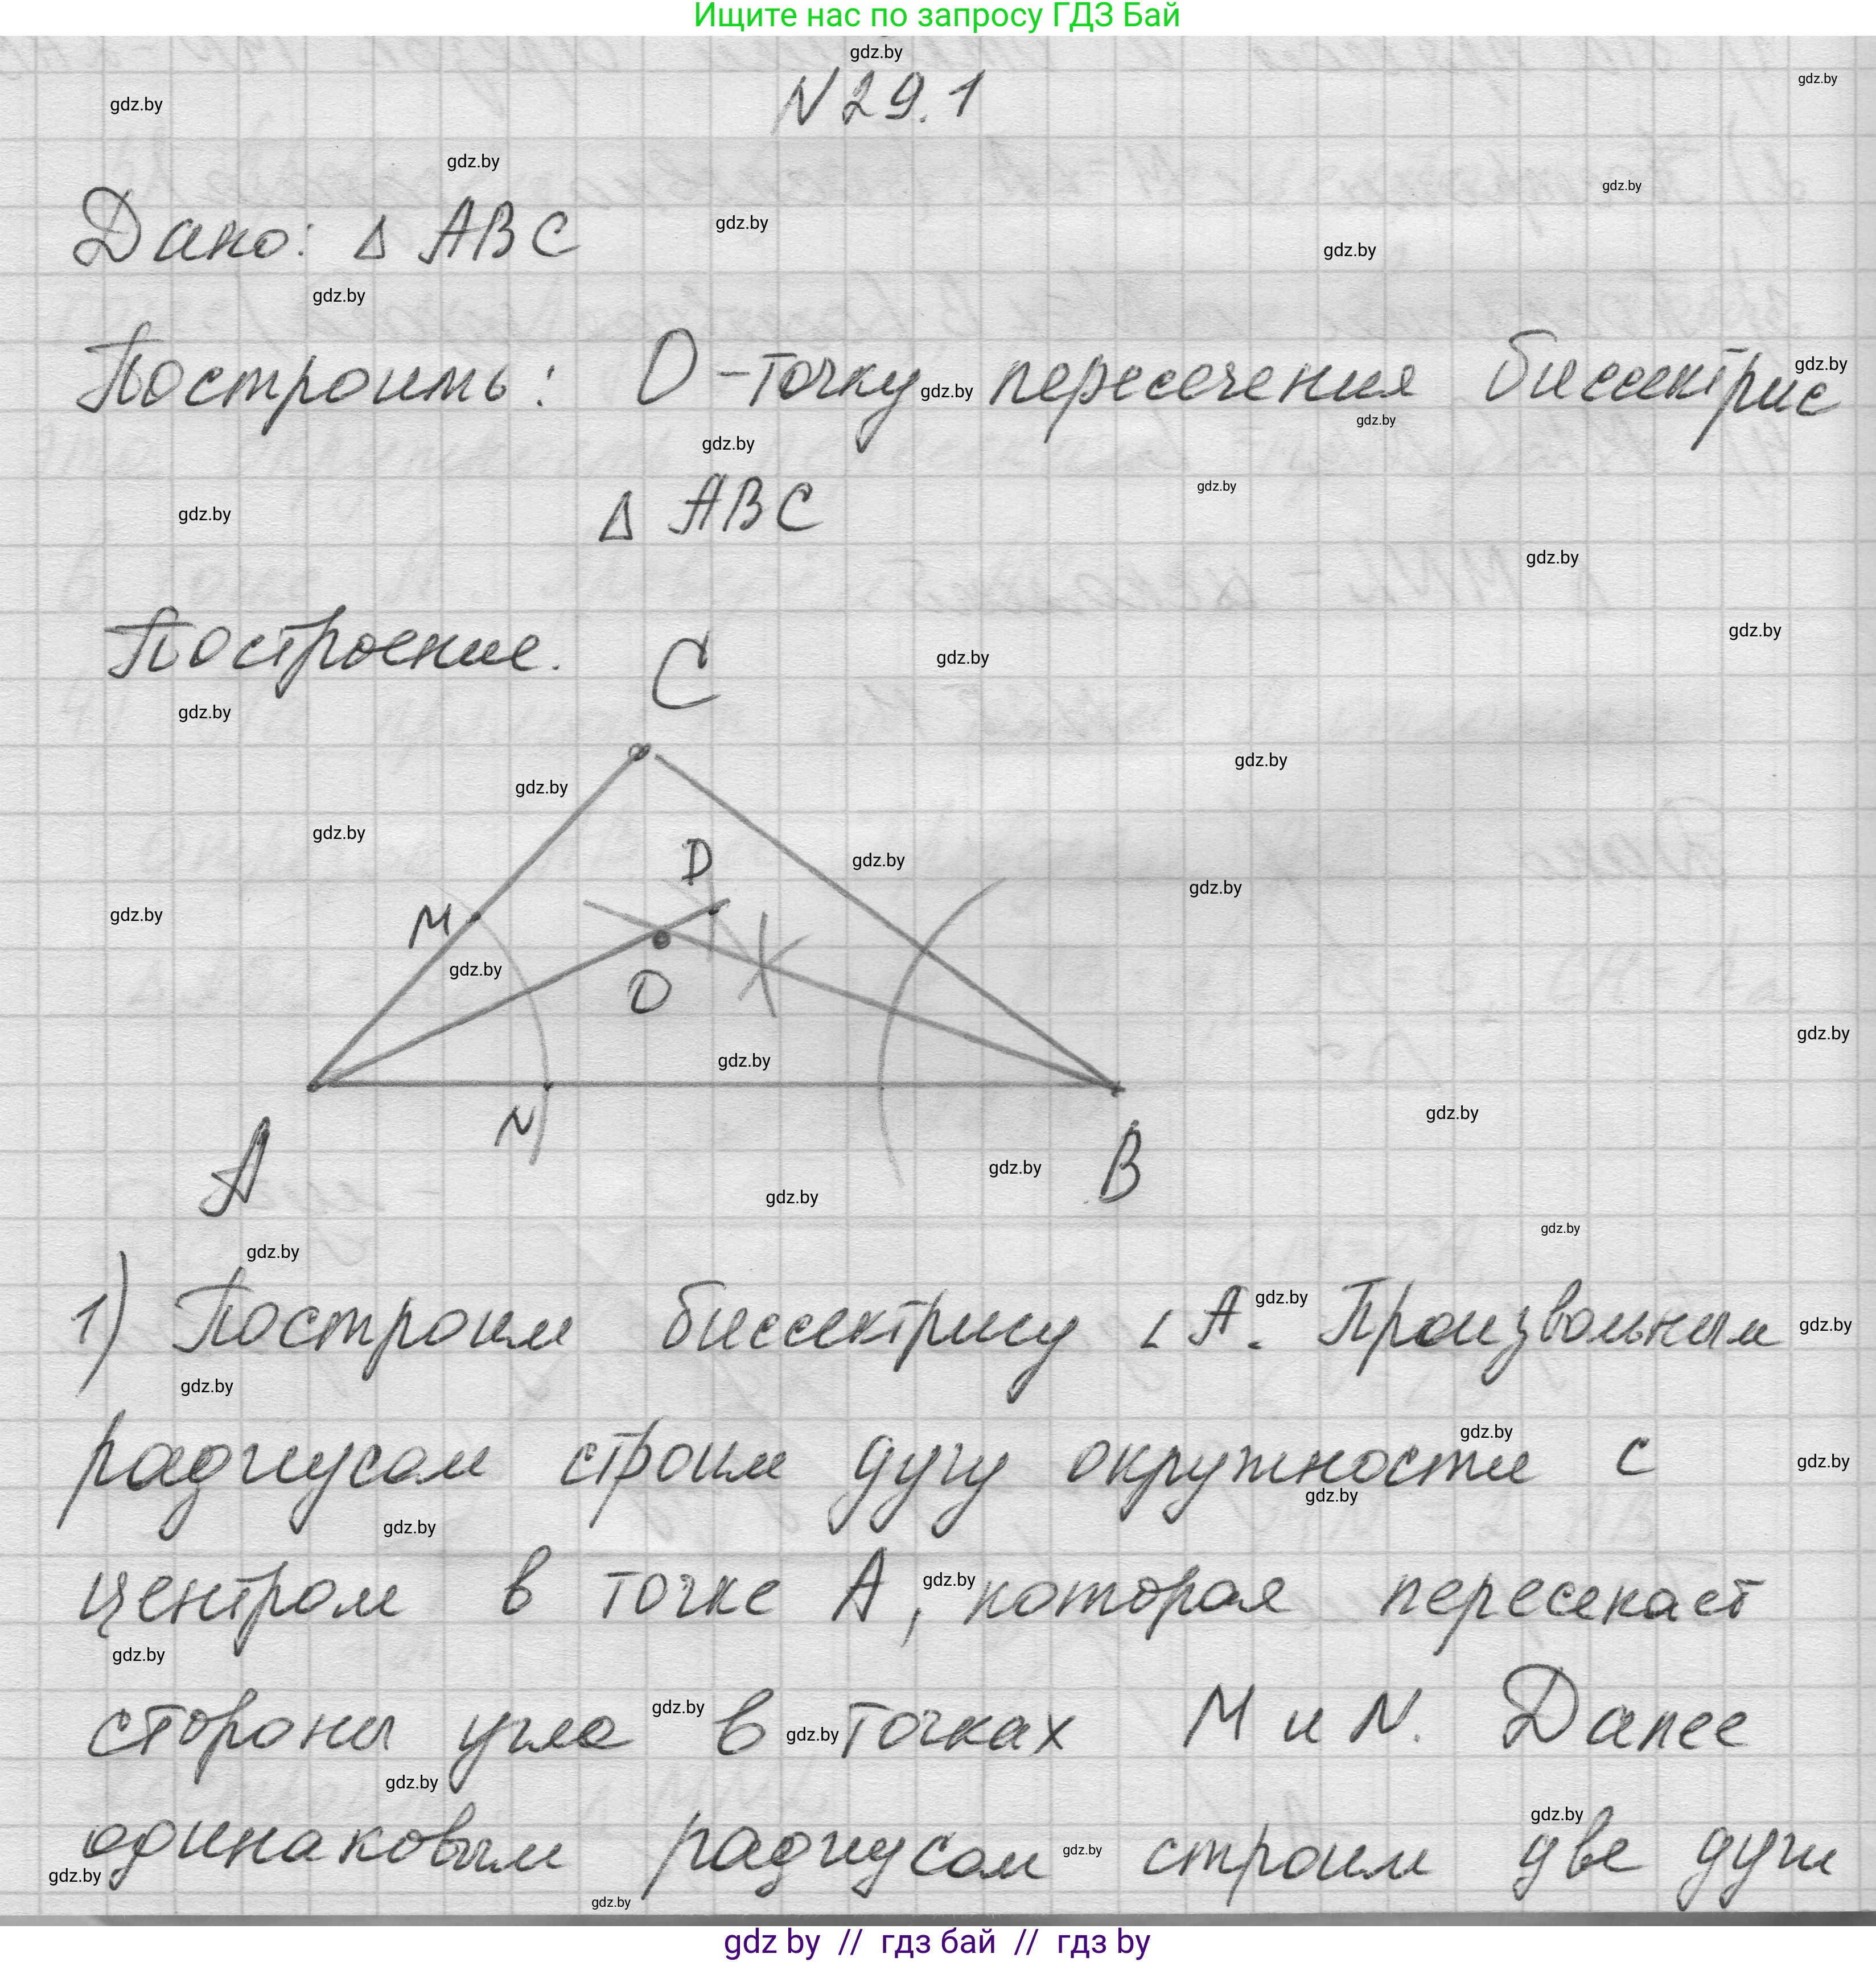 Ищите нас по запросу ГДЗ Бай
N 29.1
Дано: Δ ABC
Построить: O - точку пересечения биссектрис
Δ ABC
Построение.
C
D
M
O
N
A
B
1) Построим биссектрису ∠A. Произвольным
радиусом строим дугу окружности с
центром в точке A, которая пересекает
стороны угла в точках M и N. Далее
одинаковым радиусом строим две дуги
gdz by // гдз бай // гдз by